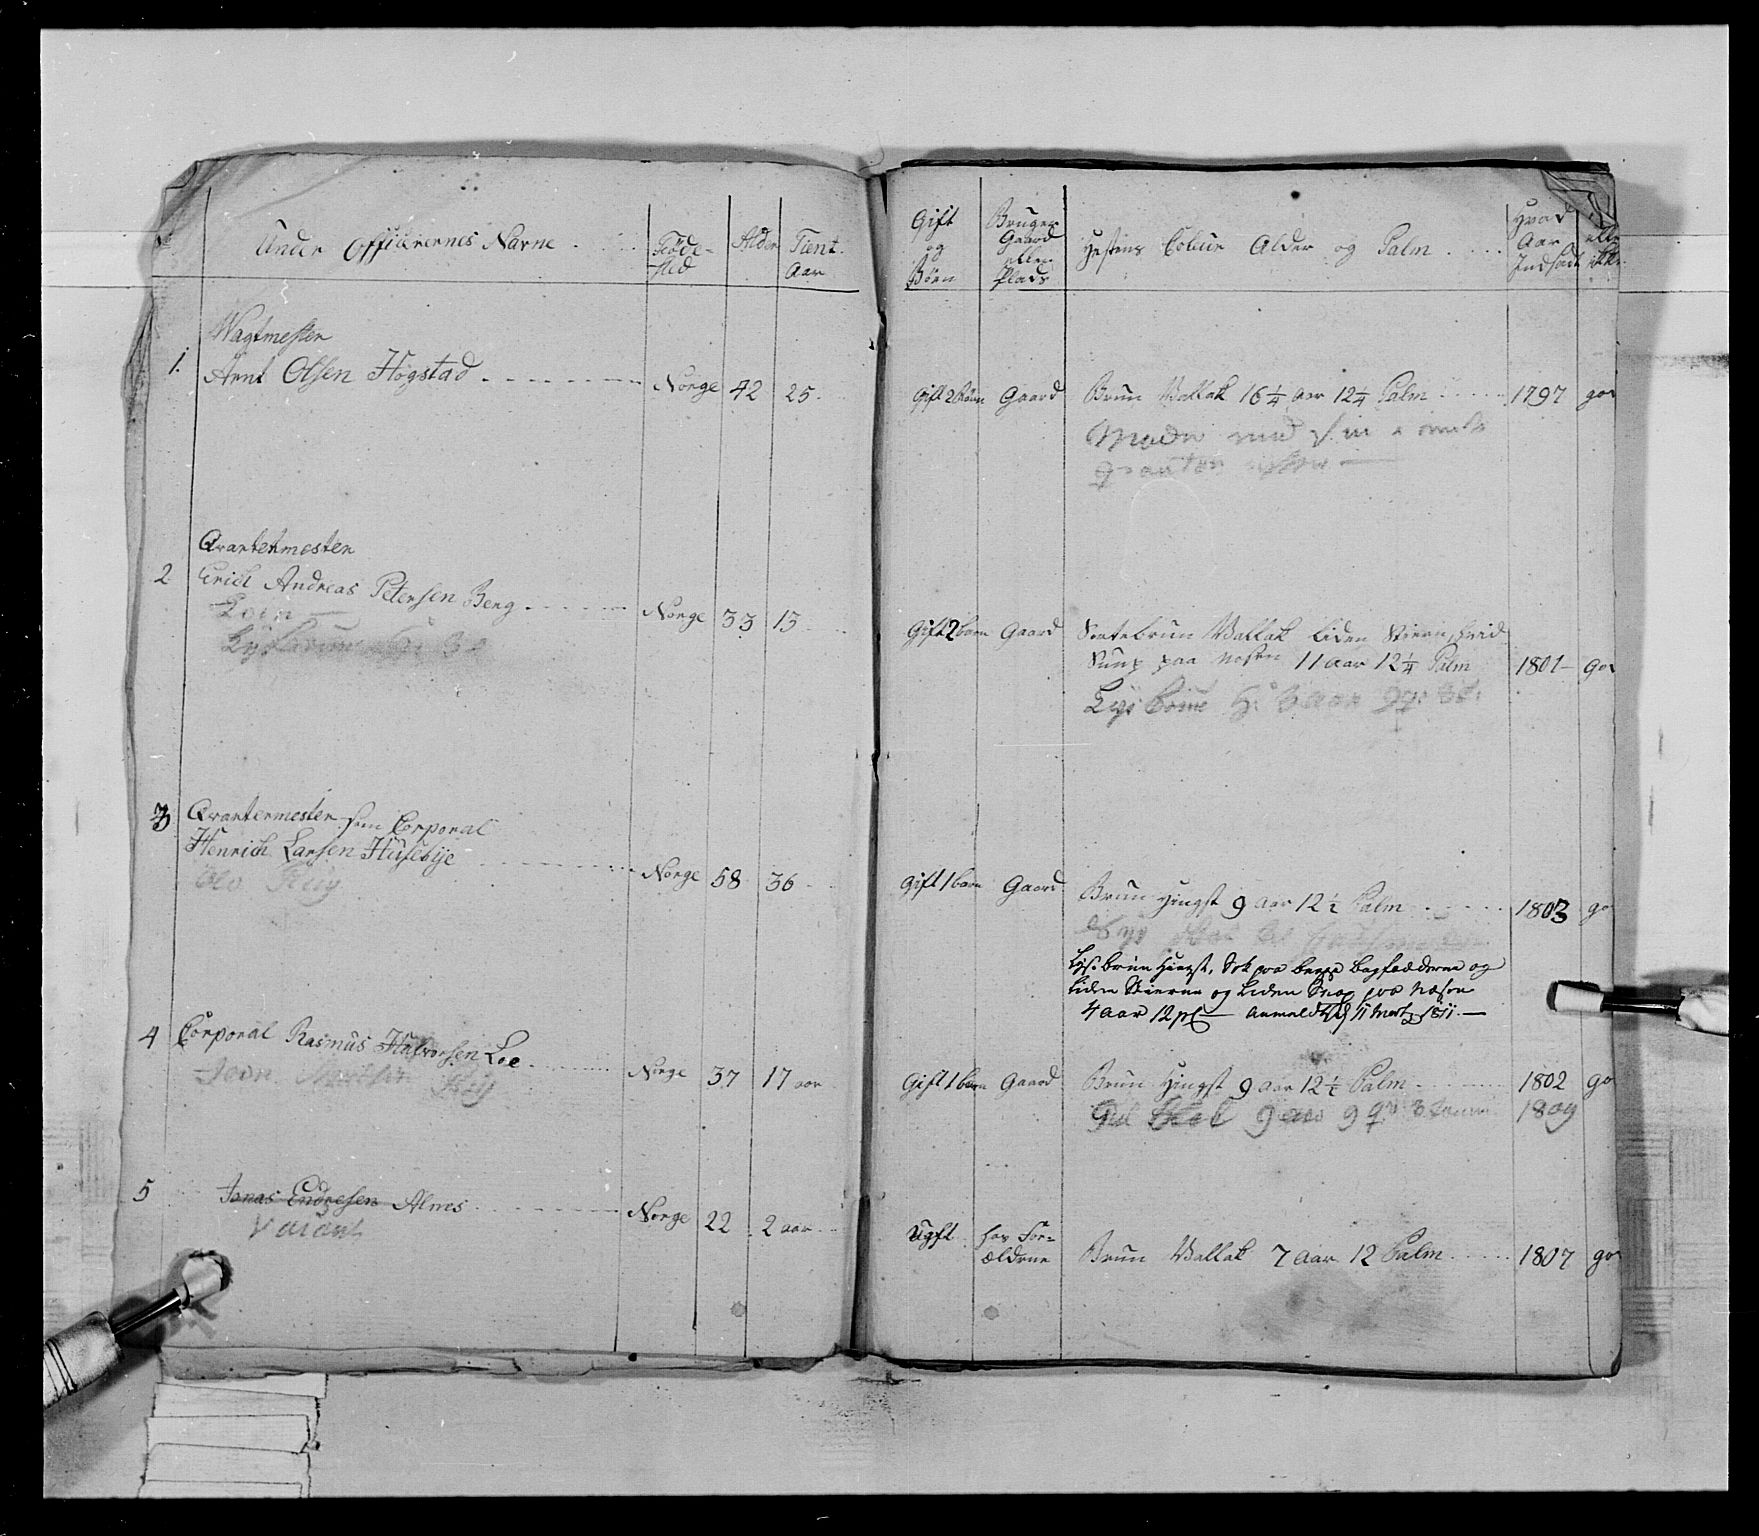 Under Officerernes Navne
Føde-
sted
Alder
Tient
Aar
Gift
og
Børn
Bruger
Gaard
eller
Plads
Hestens Coleur Alder og Palm
Hvad
Aar
Indsadt
eller
ikke
Wagtmester
1. Arnt Olsen Högstad Norge 42 25 Gift 2 Børn Gaard Brun Vallak 16¼ Aar 12¼ Palm 1797 god
Qvartermester
2 Erich Andreas Petersen Berg Norge 33 13 Gift 2 barn Gaard Sortebrun Vallak liden Stierne, hvid
Snup paa Nesen 11 aar 12¼ Palm 1801 god
Lys brune H: 3 aar 9 q:
3 Qvartermester som Corporal
Henrich Larsen Husebye Norge 58 36 Gift 1 barn Gaard Brun Hingst 9 Aar 12½ Palm 1803 go
Lys: brun Hingst, Sok paa begge bagfødderne og
liden Stierne og Liden Snop paa Næsen
4 Aar 12 pl anmeldt d 11 Martz 1811.
4 Corporal Rasmus Halvorsen Loe Norge 37 17 aar Gift 1 barn Gaard Brun Hingst 9 Aar 12½ Palm 1802 go
9 q: 1809
5 Jonas Endresen Alnes Norge 22 2 aar Ugft hos For=
ældrene Brun Vallak 7 Aar 12 Palm 1807 go
Vacant